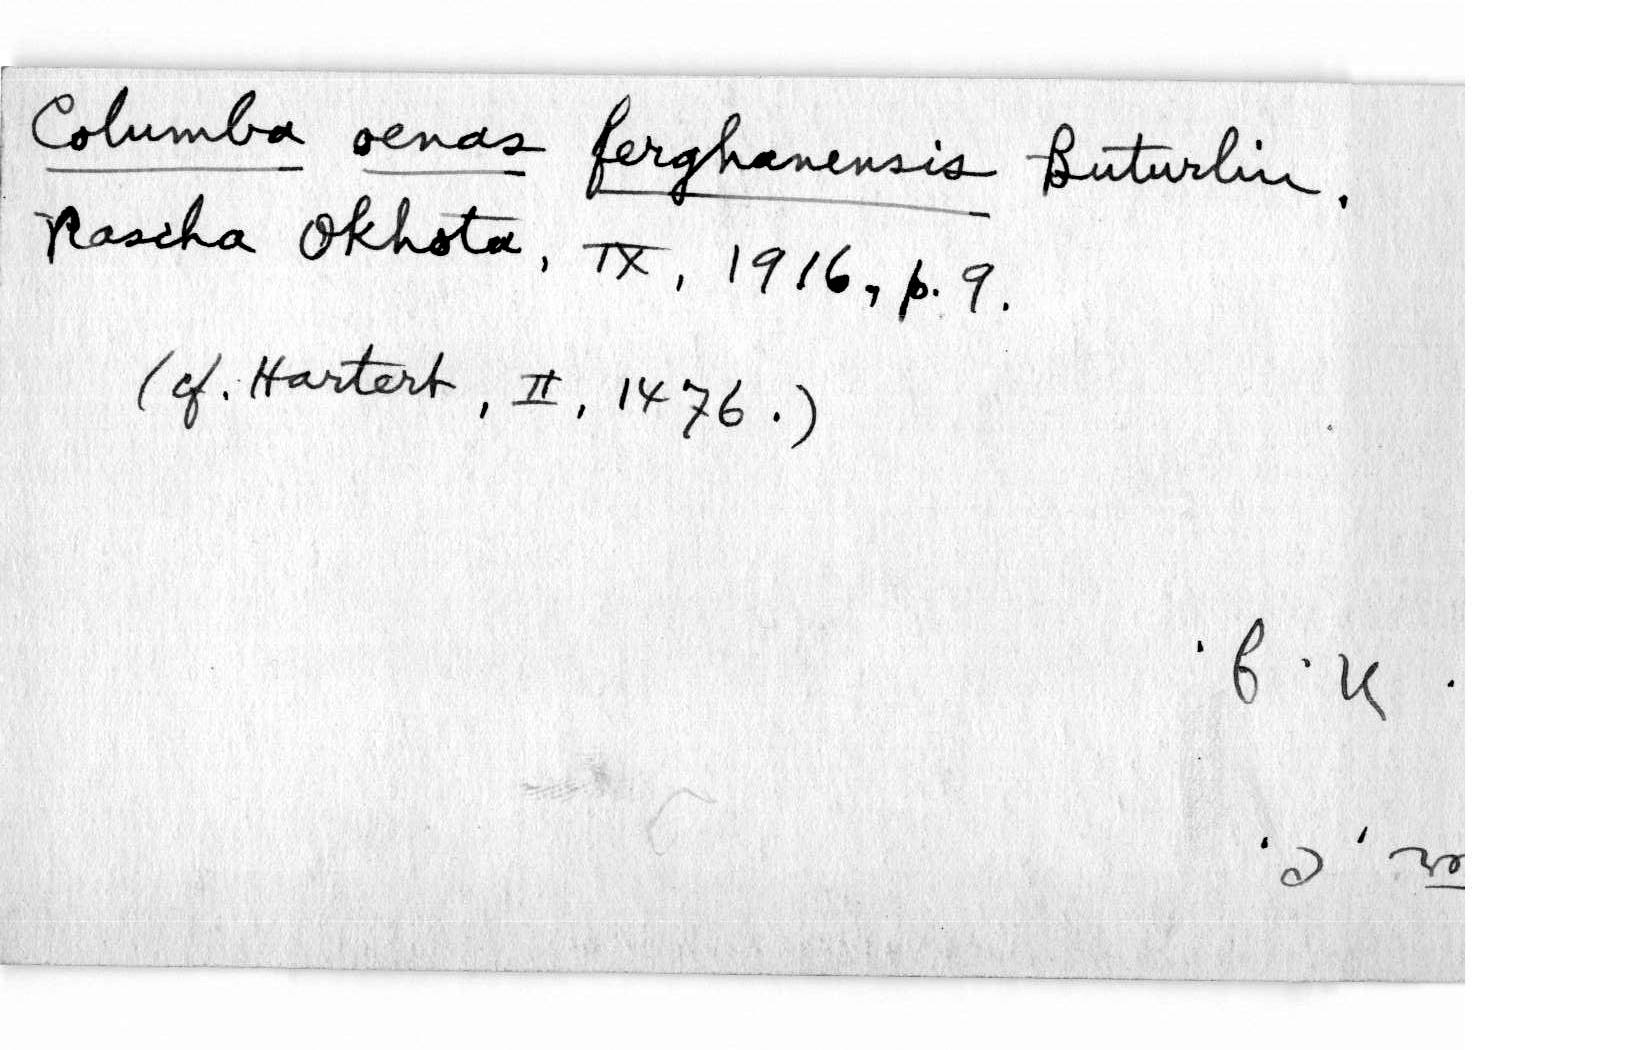 Columba oenas ferghanensis Buturlin.
Nascha Okhota, IX, 1916, p. 9.
(cf. Hartert, II, 1476.)